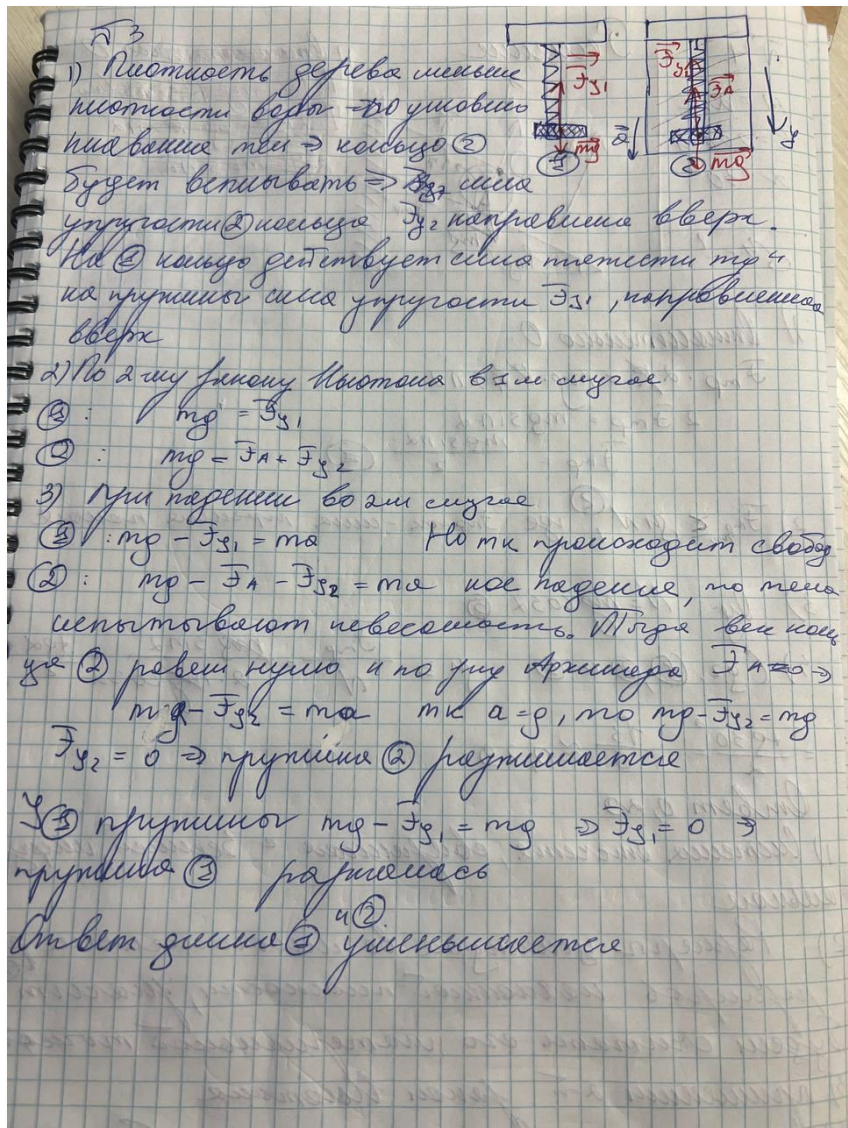 №3
1) Плотность дерева меньше
плотности воды → по условию
плавания тел ⇒ кольцо ②
будет всплывать ⇒ сила
упругости ② кольца Fу2 направлена вверх.
На ① кольцо действует сила тяжести mg и
на пружины сила упругости Fу1, направленная
вверх
2) По 2-му закону Ньютона в 1м случае
①: mg = Fу1
②: mg = FA + Fу2
3) При падении во 2м случае
①: mg - Fу1 = ma Но тк происходит свобод
②: mg - FA - Fу2 = ma ное падение, то тела
испытывают невесомость. Тогда вес коль
ца ② равен нулю и по зку Архимеда FA=0 ⇒
mg - Fу2 = ma тк a = g, то mg - Fу2 = mg
Fу2 = 0 ⇒ пружина ② разжимается
У ① пружины mg - Fу1 = mg ⇒ Fу1 = 0 ⇒
пружина ① разжалась
Ответ длина ① и ② уменьшается
Fу1
mg
①
a
Fу2
FA
mg
②
y